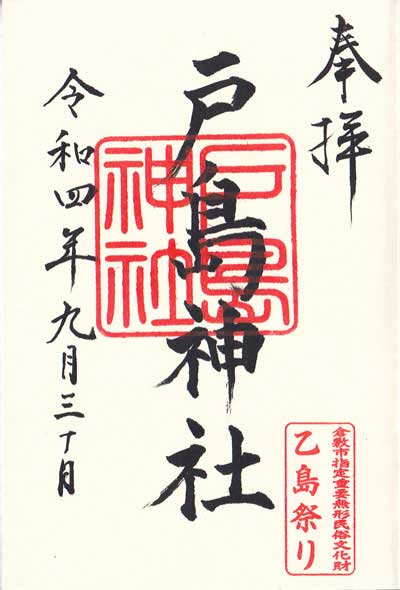 奉拝
戸島神社
戸島
神社
令和四年九月三十月
倉敷市指定重要無形民俗文化財
乙島祭り